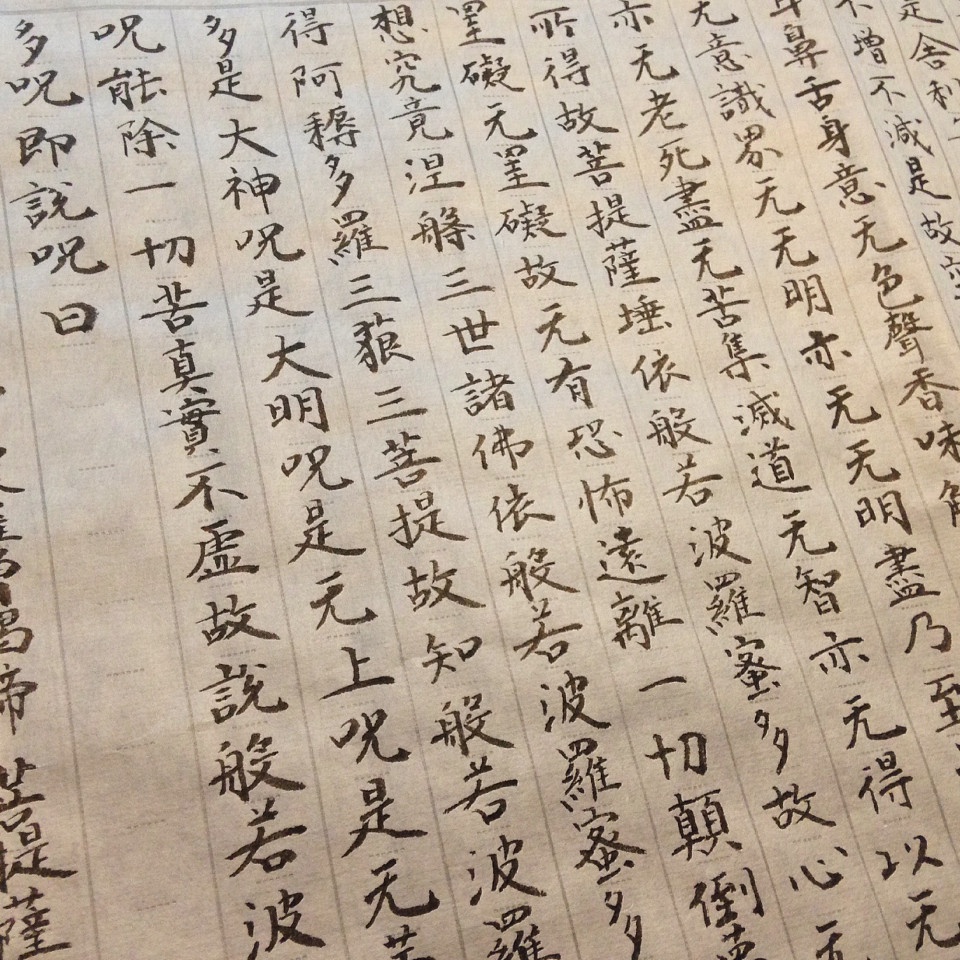 是舍利
不增不減是故空
耳鼻舌身意无色聲香味觸
无意識界无无明亦无无明盡乃至
亦无老死盡无苦集滅道无智亦无得以无
所得故菩提薩埵依般若波羅蜜多故心无
罣礙无罣礙故无有恐怖遠離一切顛倒夢
想究竟涅槃三世諸佛依般若波羅蜜多
得阿耨多羅三藐三菩提故知般若波羅
多是大神呪是大明呪是无上呪是无等
呪能除一切苦真實不虛故說般若波
多呪即說呪曰
揭帝菩提薩